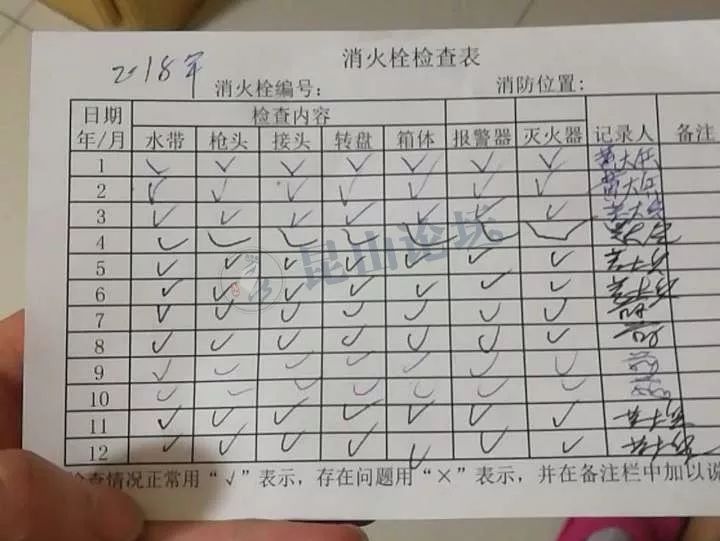 消火栓检查表
2018年
消火栓编号: 消防位置:
日期 年/月 检查内容 报警器 灭火器 记录人 备注
水带 枪头 接头 转盘 箱体
1 ✓ ✓ ✓ ✓ ✓ ✓ ✓
2 ✓ ✓ ✓ ✓ ✓ ✓ ✓
3 ✓ ✓ ✓ ✓ ✓ ✓ ✓
4 ✓ ✓ ✓ ✓ ✓ ✓ ✓
5 ✓ ✓ ✓ ✓ ✓ ✓ ✓
6 ✓ ✓ ✓ ✓ ✓ ✓ ✓
7 ✓ ✓ ✓ ✓ ✓ ✓ ✓
8 ✓ ✓ ✓ ✓ ✓ ✓ ✓
9 ✓ ✓ ✓ ✓ ✓ ✓ ✓
10 ✓ ✓ ✓ ✓ ✓ ✓ ✓
11 ✓ ✓ ✓ ✓ ✓ ✓ ✓
12 ✓ ✓ ✓ ✓ ✓ ✓ ✓
检查情况正常用“√”表示，存在问题用“×”表示，并在备注栏中加以说
昆山论坛